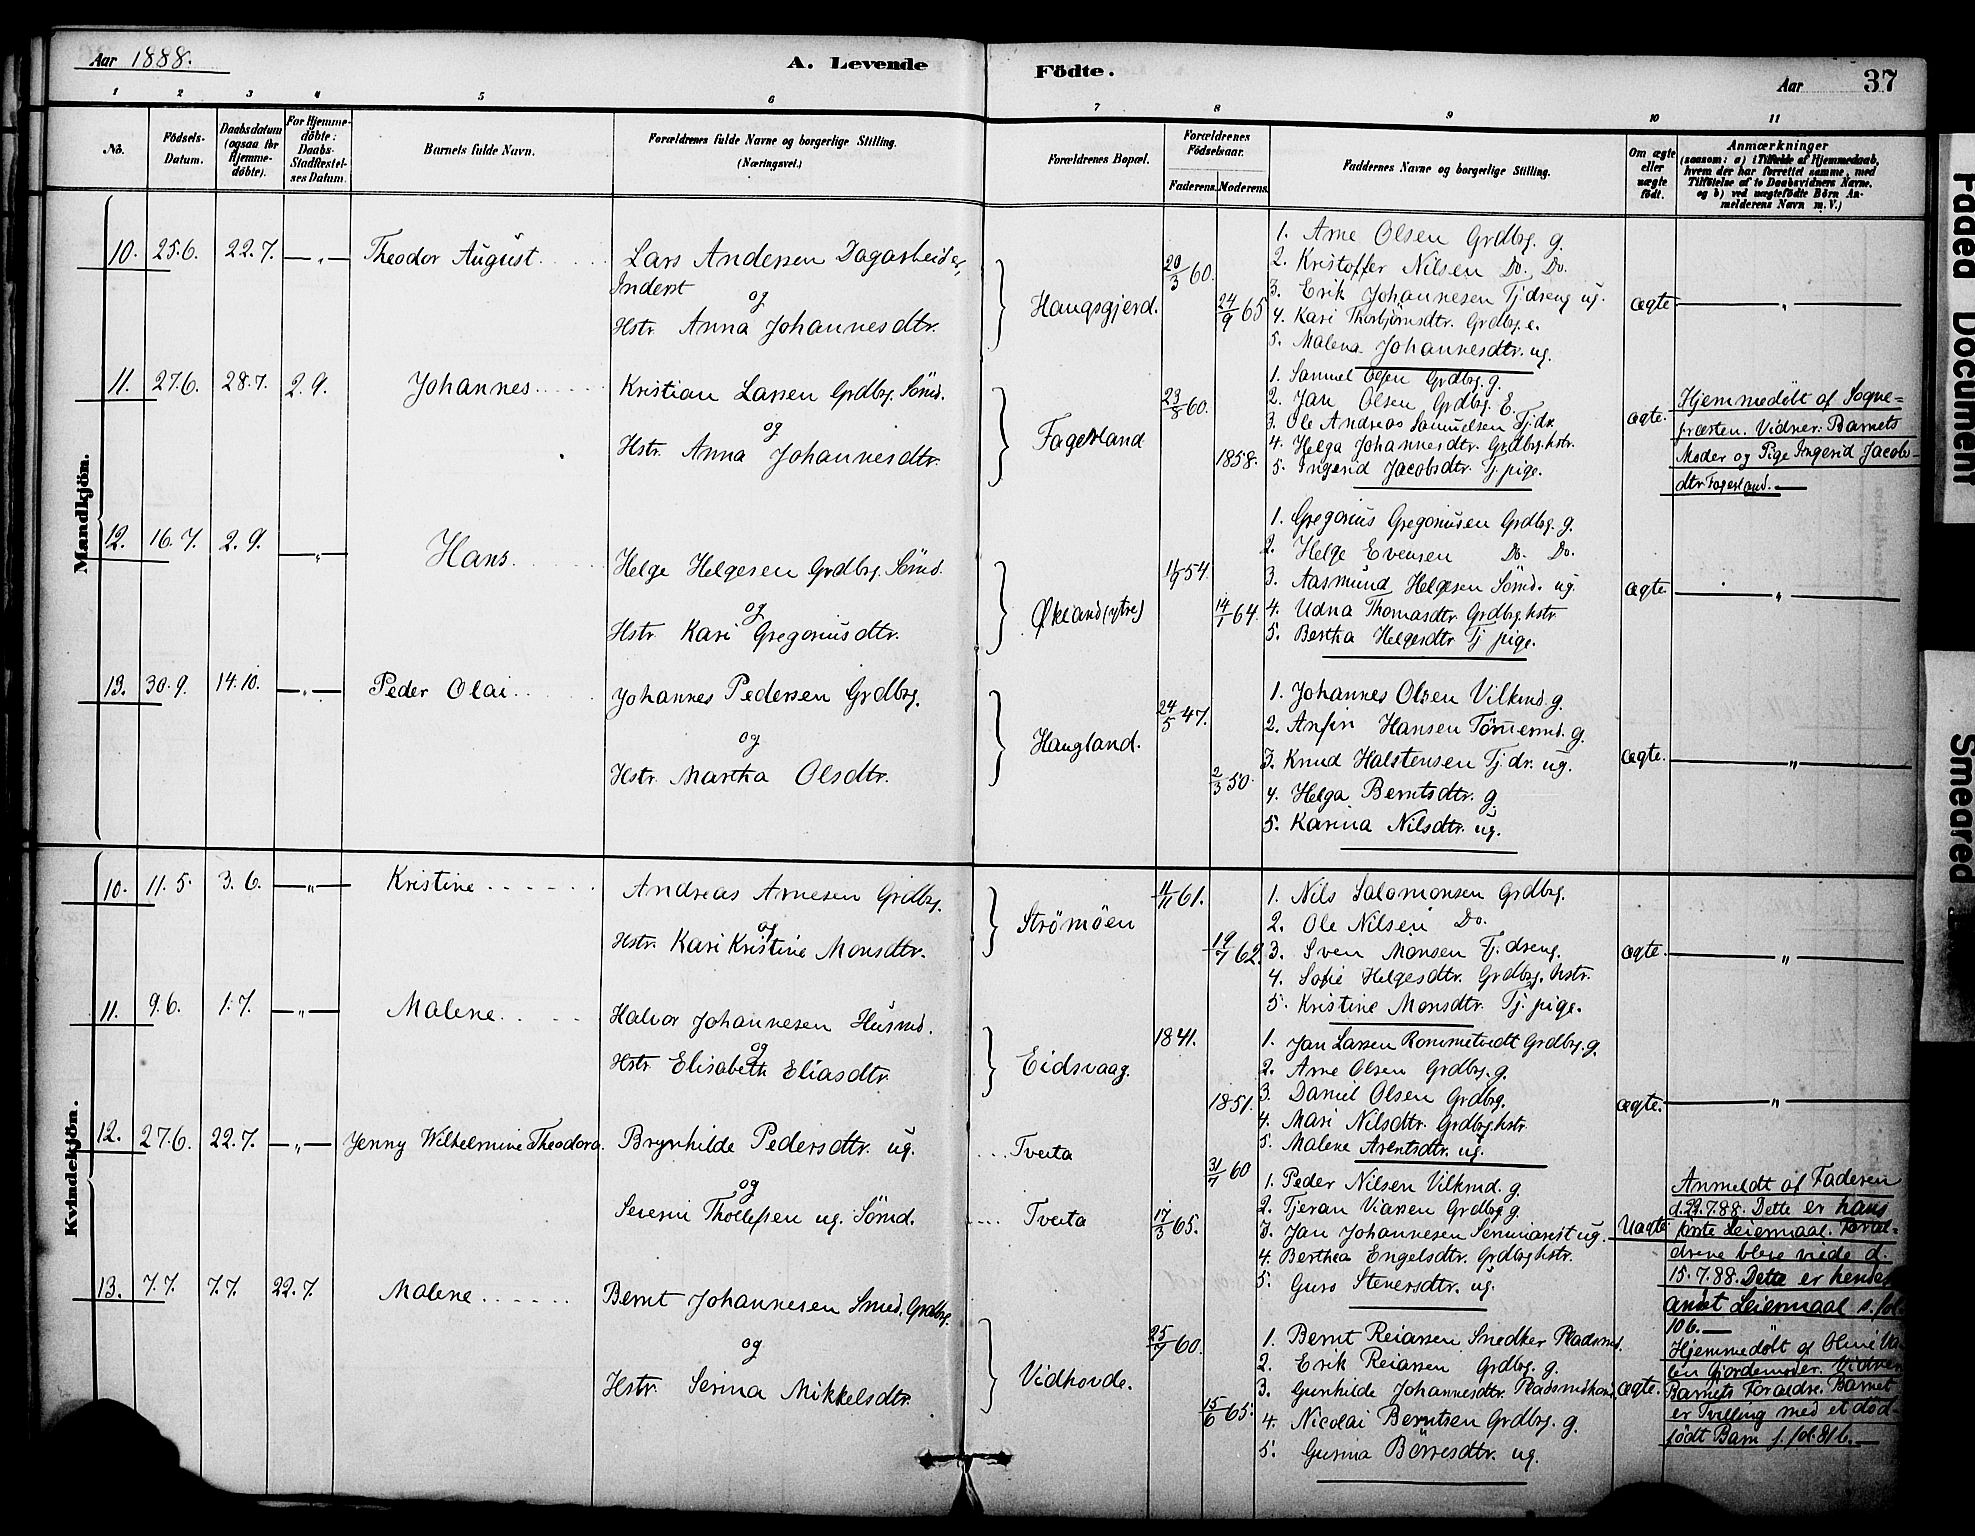 Aar 1888.
A. Levende
Födte.
Aar
37
1 2 3 4 5 6 7 8 9 10 11
No.
Födsels-
Datum.
Daabsdatum
(ogsaa for
Hjemme-
döbte).
For Hjemme-
döbte:
Daabs-
Stadfæstel-
ses Datum.
Barnets fulde Navn.
Forældrenes fulde Navne og borgerlige Stilling.
(Næringsvei.)
Forældrenes Bopæl.
Forældrenes
Födselsaar.
Faderens. Moderens.
Faddernes Navne og borgerlige Stilling.
Om ægte
eller
uægte
födt.
Anmærkninger
(saasom: a) i Tilfælde af Hjemmedaab,
hvem der har forrettet samme, med
Tilföielse af to Daabsvidners Navne,
og b) ved uægtefödte Börn An-
melderens Navn m. V.)
Mandkjön.
10. 25.6. 22.7. — „ — Theodor August
Lars Andersen Dagarbeider,
Inderst
og
Hstr. Anna Johannesdtr.
Haugsgjerd.
20/3 60.
24/9 65
1. Arne Olsen Grdbrg. g.
2. Kristoffer Nilsen Do. Do.
3. Erik Johannesen Tj.dreng ug.
4. Kari Thorbjørnsdtr. Grdbrg. e.
5. Malena Johannesdtr. ug.
ægte „
11. 27.6. 28.7. 2.9. Johannes
Kristian Larsen Grdbrg. Sömd.
og
Hstr. Anna Johannesdtr.
Fagerland
23/8 60.
1858.
1. Samuel Olsen Grdbrg. g.
2. Jan Olsen Grdbrg. E.
3. Ole Andreas Samuelsen Tj.dr.
4. Helga Johannesdtr. Grdbrg.hstr.
5. Ingerid Jacobsdtr. Tj.pige.
ægte.
Hjemmedöbt af Sogne=
præsten. Vidner: Barnets
Moder og Pige Ingerid Jacobs-
dtr. Fagerland.—
12. 16.7. 2.9. — „ — Hans
Helge Helgesen Grdbrg. Sömd.
og
Hstr. Kari Gregoriusdtr.
Økland (ytre)
11/9 54.
14/1 64.
1. Gregorius Gregoriusen Grdbrg. g.
2. Helge Evensen Do. Do.
3. Aasmund Helgesen Sömd. ug.
4. Udna Thomasdtr. Grdbrg.hstr.
5. Bertha Helgesdtr. Tj.pige.
ægte. „
13. 30.9. 14.10. — „ — Peder Olai
Johannes Pedersen Grdbrg.
og
Hstr. Martha Olsdtr.
Haugland.
24/5 47.
2/3 50.
1. Johannes Olsen Vilkmd. g.
2. Anfin Hansen Tömermd. g.
3. Knud Halstensen Tj.dr. ug.
4. Helga Berntsdtr. g
5. Karina Nilsdtr. ug.
ægte. „
Kvindekjön.
10. 11.5. 3.6. — „ — Kristine
Andreas Arnesen Grdbrg.
og
Hstr. Kari Kristine Monsdtr.
Strömöen
11/11 61.
19/7 62.
1. Nils Salomonsen Grdbrg.
2. Ole Nilsen Do.
3. Sven Monsen Tj.dreng.
4. Sofie Helgesdtr. Grdbrg.hstr.
5. Kristine Monsdtr. Tj.pige.
ægte. „
11. 9.6. 1.7. — „ — Malene
Halvor Johannesen Husmd.
og
Hstr. Elisabeth Eliasdtr.
Eidsvaag.
1841.
1851.
1. Jan Larsen Rommetvedt Grdbrg. g.
2. Arne Olsen Grdbrg. g.
3. Daniel Olsen Grdbrg.
4. Mari Nilsdtr. Grdbrg.hstr.
5. Malene Arentsdtr. ug.
ægte. „
12. 27.6. 22.7. — „ — Jenny Wilhelmine Theodora.
Brynhilde Pedersdtr. ug.
og
Severin Thollefsen ug. Sömd.
Tveita
Tveita
31/7 60
17/3 65.
1. Peder Nilsen Vilkmd. g.
2. Tjeran Viansen Grdbrg. g
3. Jan Johannesen Seminarist ug.
4. Berthea Engelsdtr. Grdbrg.hstr.
5. Guro Stenersdtr. ug.
Uægte
Anmeldt af Faderen
d. 22.7.88. Dette er hans
förste Leiermaal. Foræl-
drene bleve viede d.
15.7.88. Dette er hendes
andet Leiermaal s. fol.
106.—
13. 7.7. 7.7. 22.7. Malene
Bernt Johannesen Smed. Grdbrg.
og
Hstr. Serina Mikkelsdtr.
Vidhovde.
25/7 60.
15/6 65.
1. Bernt Reiarsen Snedker Pladsmd.
2. Erik Reiarsen Grdbrg. g.
3. Gunhilde Johannesdtr. Pladsmdkone
4. Nicolai Berntsen Grdbrg. g.
5. Gurina Börresdtr. ug.
ægte.
Hjemmedöbt af Oline
Gjordemoder. Vidner
Barnets Forældre. Barnet
er Tvilling med et död-
födt Barn s. fol. 816.—
Faded Document
Smeared